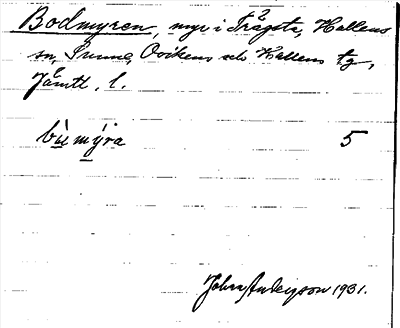 Bodmyren, myr i Trågsta, Hallens
sn, Sunne, Ovikens och Hallens tg,
Jämtl. l.
bu̲m̲ýra 5
John Anderson 1931.